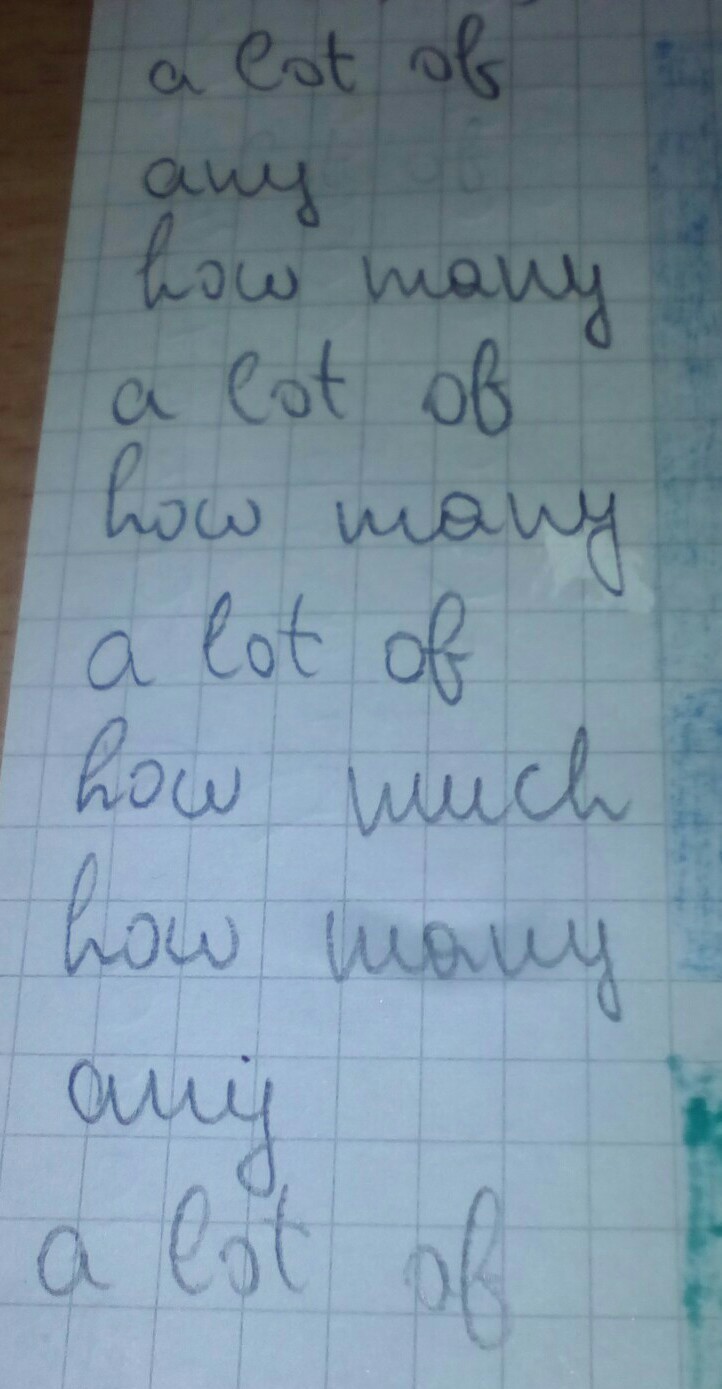 a lot of
any
how many
a lot of
how many
a lot of
how much
how many
any
a lot of